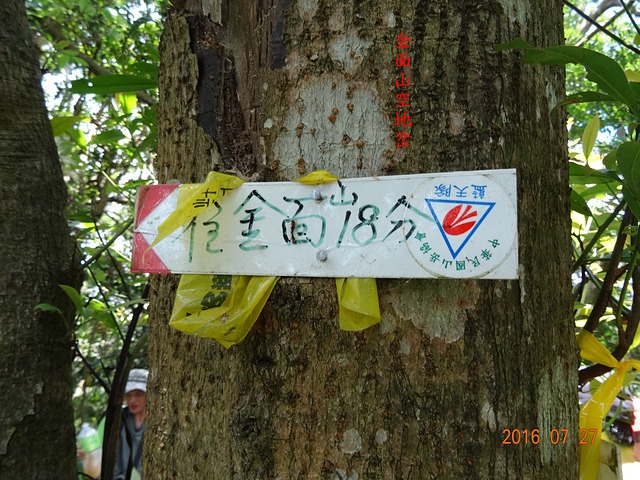 金面山空地岔
往金面山18分
藍天隊
中華民國山岳協會
2016 07 27